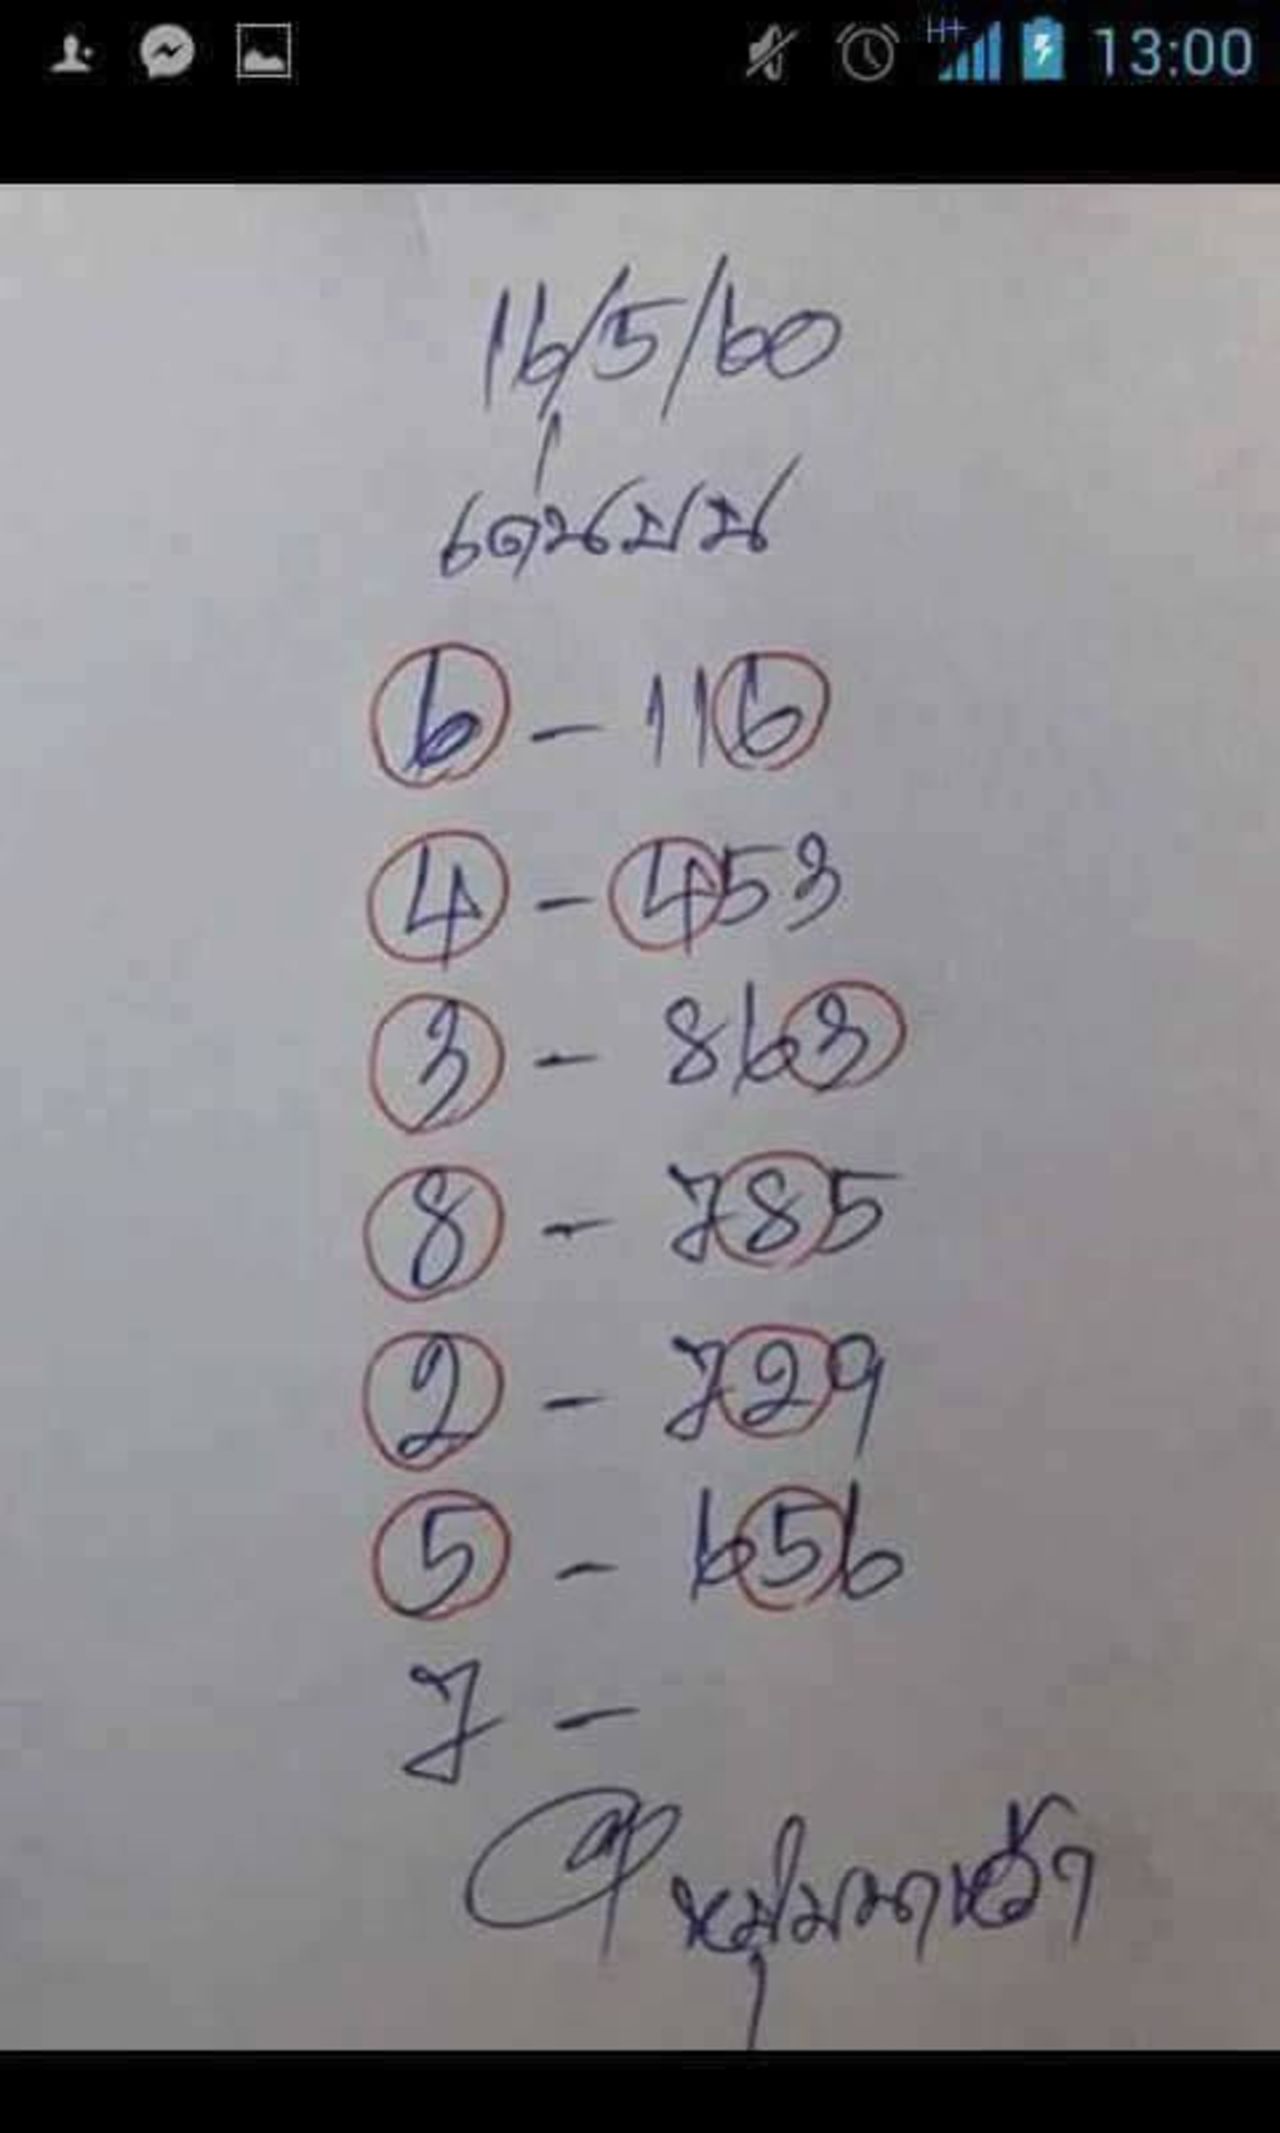 13:00
16/5/60
เด่นบน
6 - 116
4 - 453
3 - 863
8 - 785
2 - 729
5 - 656
7 -